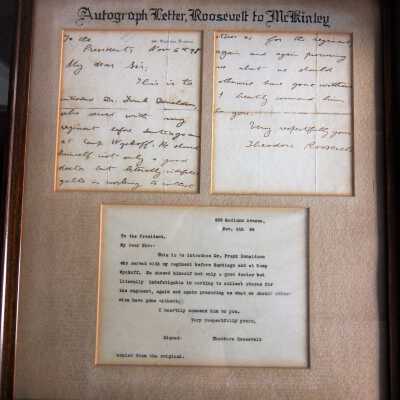 Autograph Letter, Roosevelt to McKinley
To the
President; Nov 6th 98
My dear Sir,
This is to
introduce Dr. Frank Donaldson,
who served with my
regiment before Santiago and
at Camp Wyckoff. He showed
himself not only a good
doctor but literally indefati-
gable in working to collect
stores for the regiment
again and again procuring
us what we should
otherwise have gone without.
I heartily commend him
to you.
Very respectfully yours
Theodore Roosevelt
689 Madison Avenue,
Nov. 6th 98
To the President,
My dear Sir:-
This is to introduce Dr. Frank Donaldson
who served with my regiment before Santiago and at Camp
Wyckoff. He showed himself not only a good doctor but
literally indefatigable in working to collect stores for
the regiment, again and again procuring us what we should other-
wise have gone without.
I heartily commend him to you.
Very respectfully yours,
Signed: Theodore Roosevelt
Copied from the original.